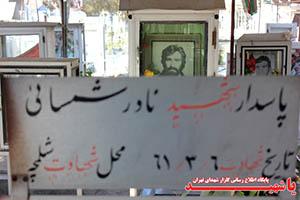 پاسدار شهید نادر شمسائی
تاریخ شهادت ۶ / ۳ / ۶۱ محل شهادت شلمچه
پایگاه اطلاع رسانی گلزار شهدای تهران
با شهید